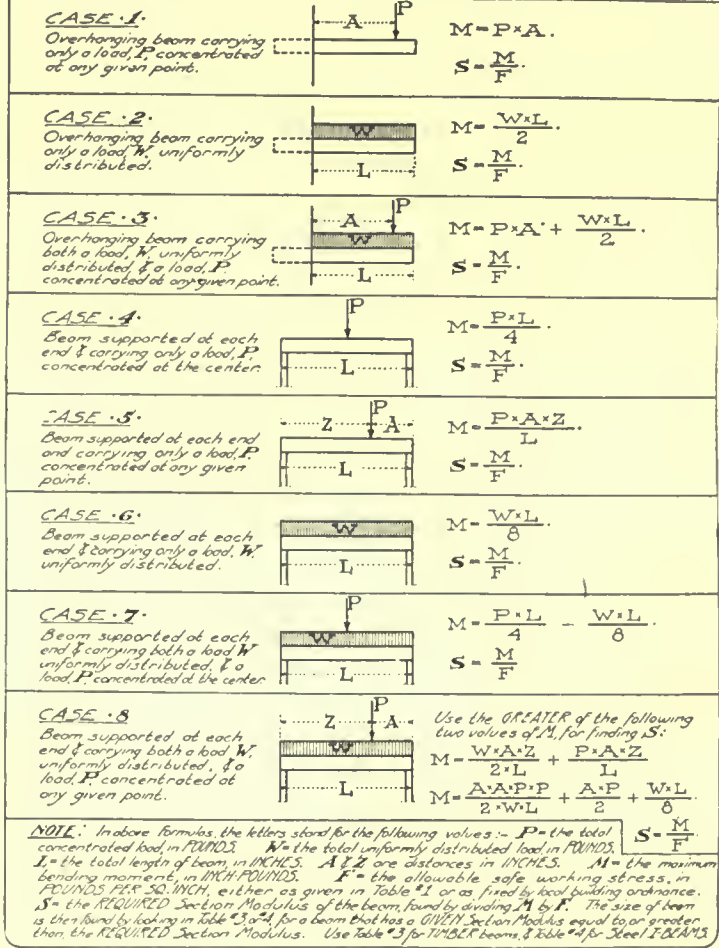 CASE ·1·
Overhanging beam carrying
only a load, P, concentrated
at any given point.
A P
M = P × A.
S = M/F.
CASE ·2·
Overhanging beam carrying
only a load, W, uniformly
distributed.
W
L
M = W × L / 2.
S = M/F.
CASE ·3·
Overhanging beam carrying
both a load, W, uniformly
distributed, & a load, P,
concentrated at any given point.
A P
W
L
M = P × A + W × L / 2.
S = M/F.
CASE ·4·
Beam supported at each
end & carrying only a load, P,
concentrated at the center.
P
L
M = P × L / 4.
S = M/F.
CASE ·5·
Beam supported at each end
and carrying only a load, P,
concentrated at any given
point.
P
Z A
L
M = P × A × Z / L.
S = M/F.
CASE ·6·
Beam supported at each
end & carrying only a load, W,
uniformly distributed.
W
L
M = W × L / 8.
S = M/F.
CASE ·7·
Beam supported at each
end & carrying both a load W
uniformly distributed, & a
load, P, concentrated at the center
P
W
L
M = P × L / 4 - W × L / 8.
S = M/F
CASE ·8
Beam supported at each
end & carrying both a load W,
uniformly distributed, & a
load, P, concentrated at
any given point.
P
Z A
W
L
Use the GREATER of the following
two values of M, for finding S:
M = W × A × Z / 2 × L + P × A × Z / L
M = A × A × P × P / 2 × W × L + A × P / 2 + W × L / 8.
S = M/F.
NOTE: In above formulas, the letters stand for the following values:- P = the total
concentrated load, in POUNDS. W = the total uniformly distributed load, in POUNDS.
L = the total length of beam, in INCHES. A & Z are distances in INCHES. M = the maximum
bending moment, in INCH-POUNDS. F = the allowable safe working stress, in
POUNDS PER SQ. INCH, either as given in Table #1 or as fixed by local building ordinance.
S = the REQUIRED Section Modulus of the beam, found by dividing M by F. The size of beam
is then found by looking in Table #3, or 4, for a beam that has a GIVEN Section Modulus equal to, or greater
than, the REQUIRED Section Modulus. Use Table #3 for TIMBER beams, & Table #4 for Steel I-BEAMS.